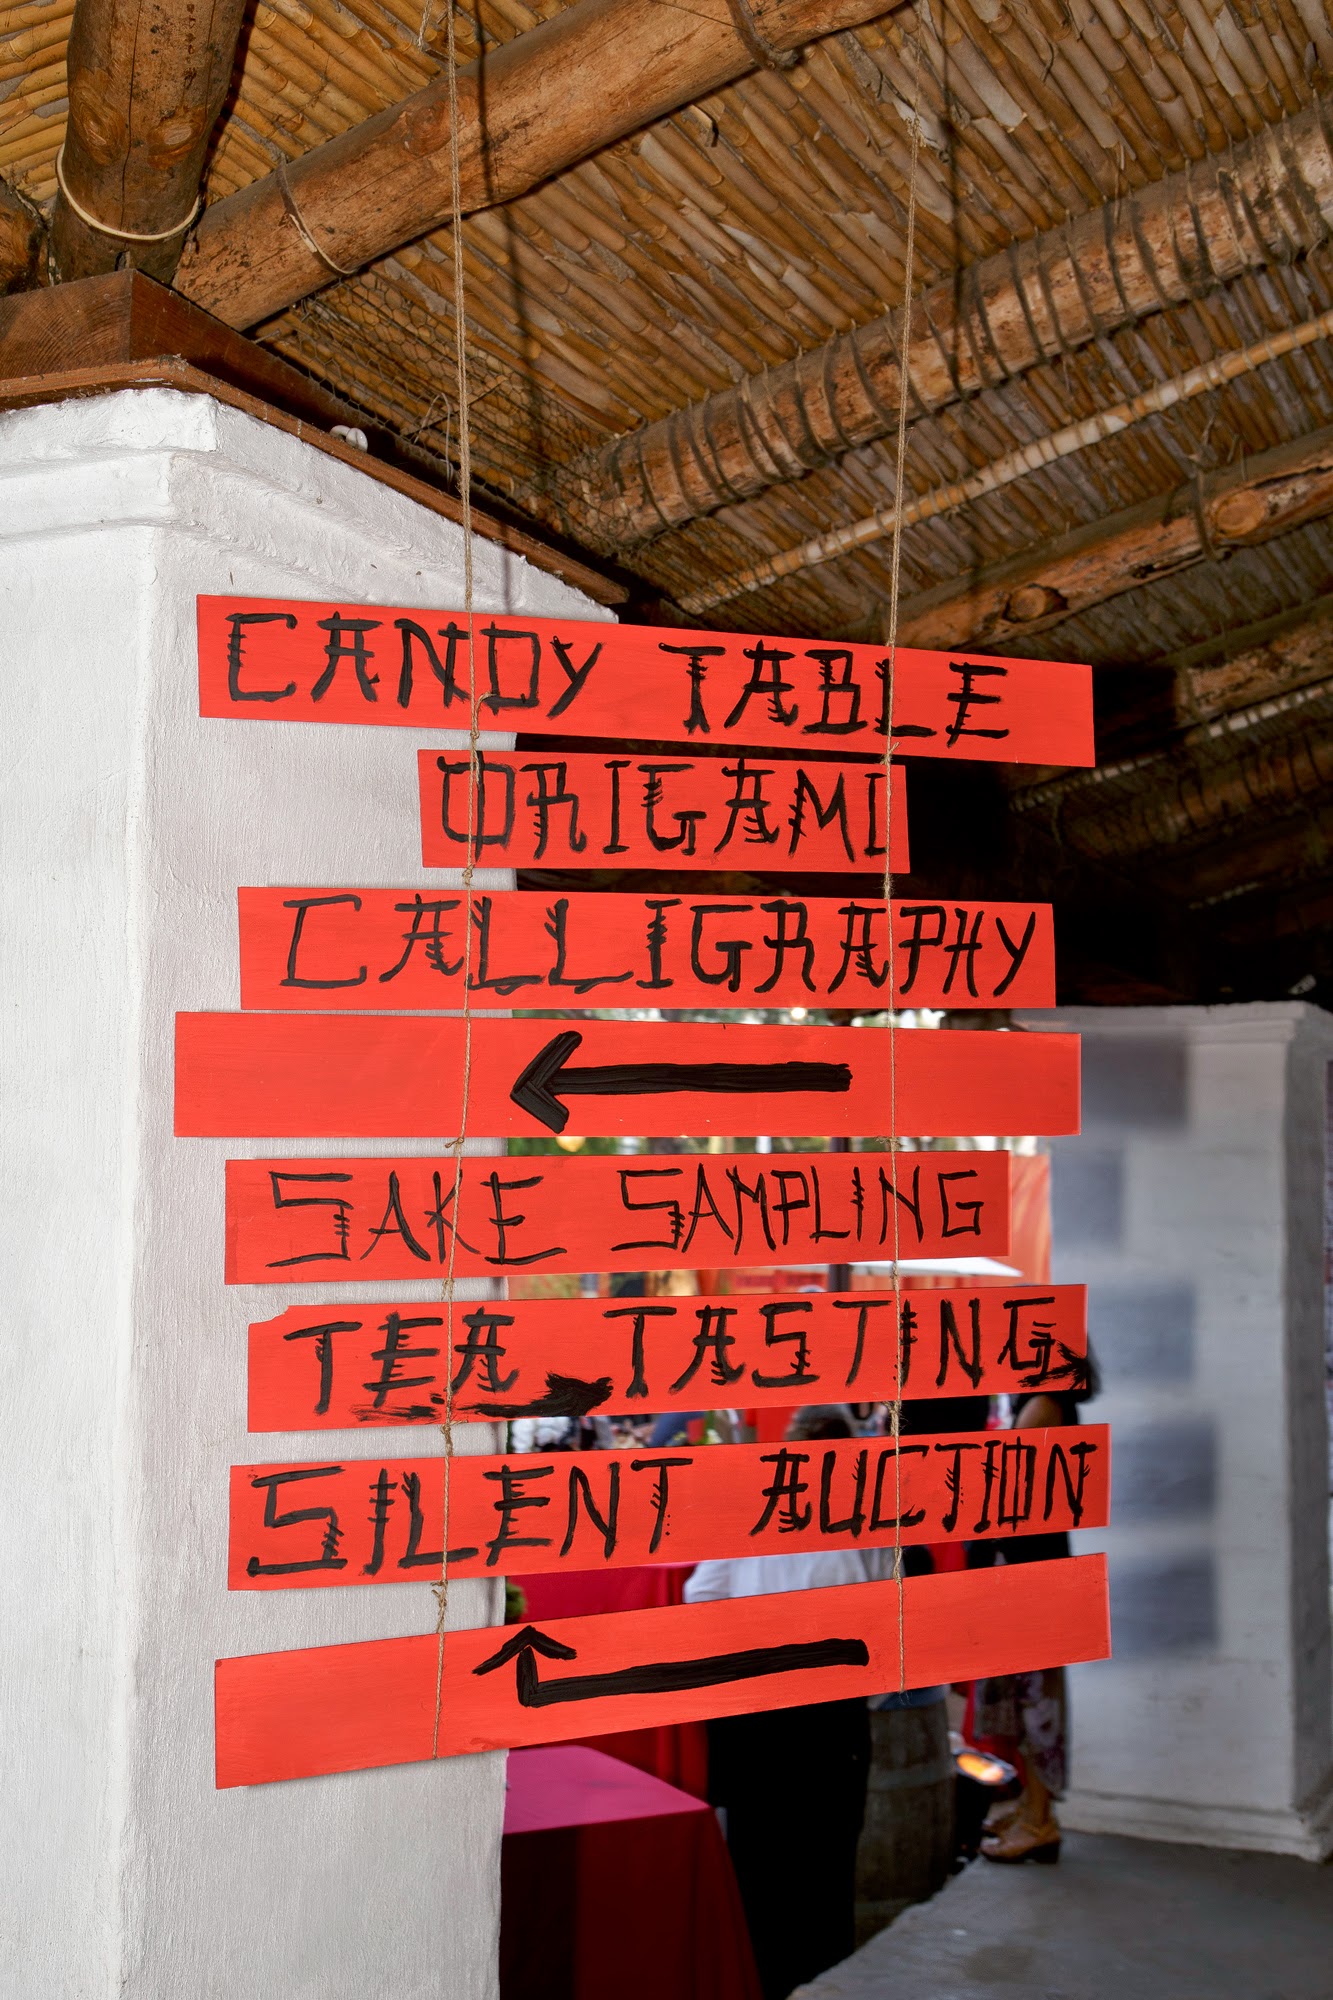 CANDY TABLE
ORIGAMI
CALLIGRAPHY
←
SAKE SAMPLING
TEA TASTING
SILENT AUCTION